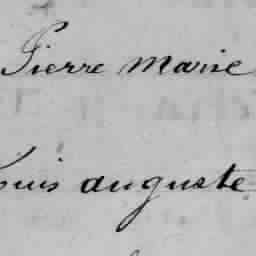 Pierre marie
ouis auguste